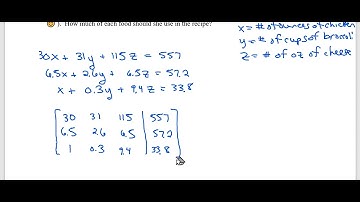 ). How much of each food should she use in the recipe?
x = # of ounces of chicken
y = # of cups of broccoli
z = # of oz of cheese
30x + 31y + 115z = 557
6.5x + 2.6y + 6.5z = 57.2
x + 0.3y + 9.4z = 33.8
30 31 115 | 557
6.5 2.6 6.5 | 57.2
1 0.3 9.4 | 33.8